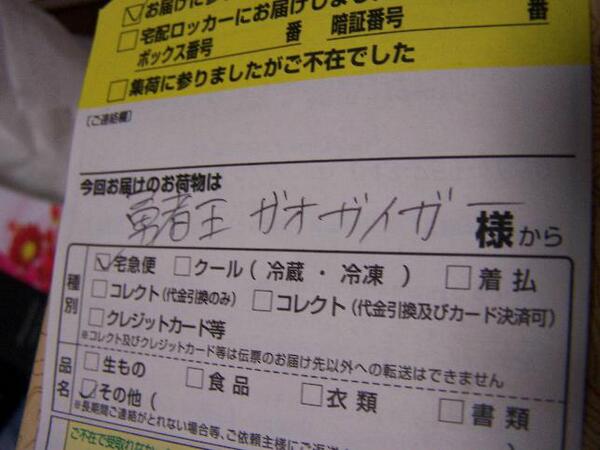 お届けに
宅配ロッカーにお届けしまし
ボックス番号 番 暗証番号 番
集荷に参りましたがご不在でした
〔ご連絡欄〕
今回お届けのお荷物は
勇者王 ガオガイガー 様から
種別
宅急便 クール( 冷蔵 ・ 冷凍 ) 着払
コレクト(代金引換のみ) コレクト(代金引換及びカード決済可)
クレジットカード等
※コレクト及びクレジットカード等は伝票のお届け先以外への転送はできません
品名
生もの 食品 衣類 書類
その他( )
※長期間ご連絡がとれない場合等、ご依頼主様にご返
ご不在で受取れな